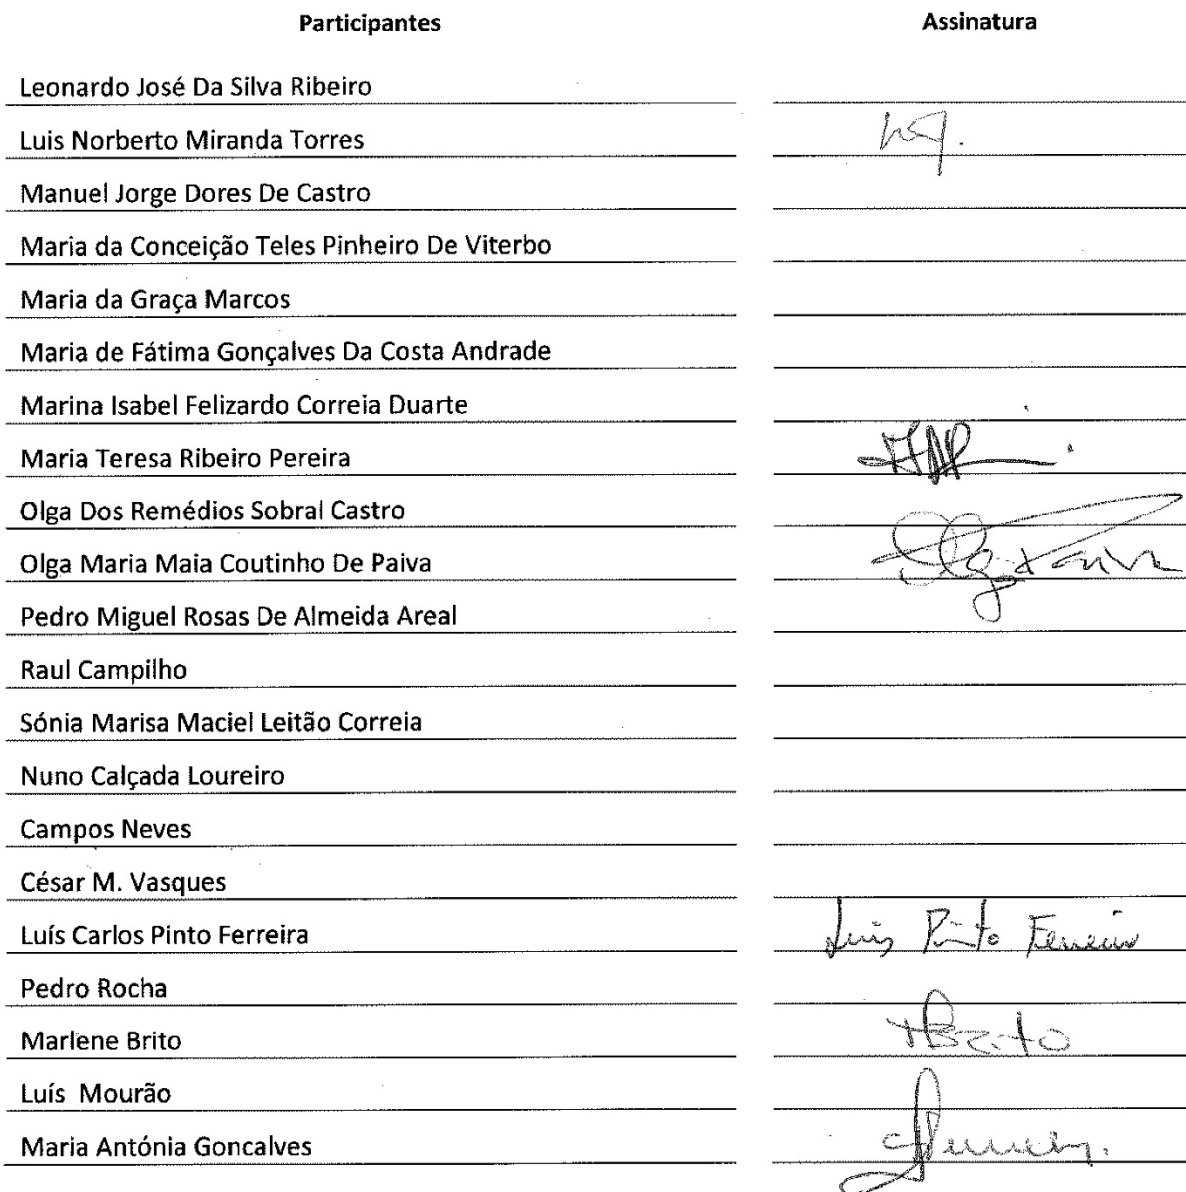 Participantes Assinatura
Leonardo José Da Silva Ribeiro
Luis Norberto Miranda Torres
Manuel Jorge Dores De Castro
Maria da Conceição Teles Pinheiro De Viterbo
Maria da Graça Marcos
Maria de Fátima Gonçalves Da Costa Andrade
Marina Isabel Felizardo Correia Duarte
Maria Teresa Ribeiro Pereira
Olga Dos Remédios Sobral Castro
Olga Maria Maia Coutinho De Paiva Olga Paiva
Pedro Miguel Rosas De Almeida Areal
Raul Campilho
Sónia Marisa Maciel Leitão Correia
Nuno Calçada Loureiro
Campos Neves
César M. Vasques
Luís Carlos Pinto Ferreira Luís Pinto Ferreira
Pedro Rocha
Marlene Brito MBrito
Luís Mourão
Maria Antónia Goncalves